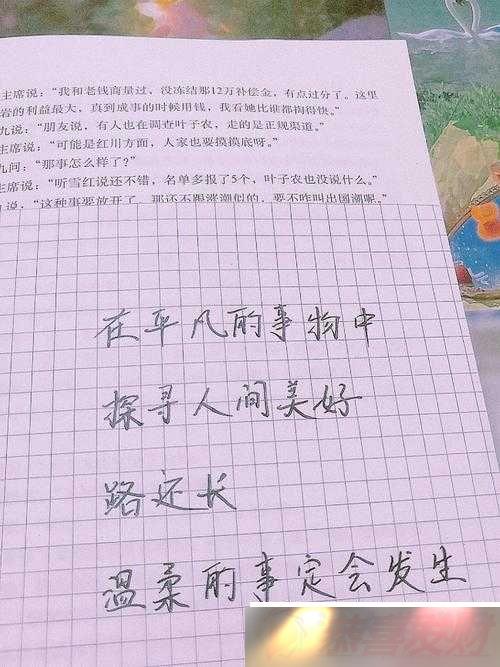 主席说：“我和老钱商量过，没冻结那12万补偿金，有点过分了。这里
岩的利益最大，真到成事的时候用钱，我看她比谁都掏得快。”
九说：“朋友说，有人也在调查叶子农，走的是正规渠道。”
主席说：“可能是红川方面，人家也要摸摸底呀。”
九问：“那事怎么样了？”
主席说：“听雪红说还不错，名单多报了5个，叶子农也没说什么。”
说：“这种事要放开了，那还不跟涨潮似的，要不咋叫出国潮呢。”
在平凡的事物中
探寻人间美好
路还长
温柔的事定会发生
恭喜发财